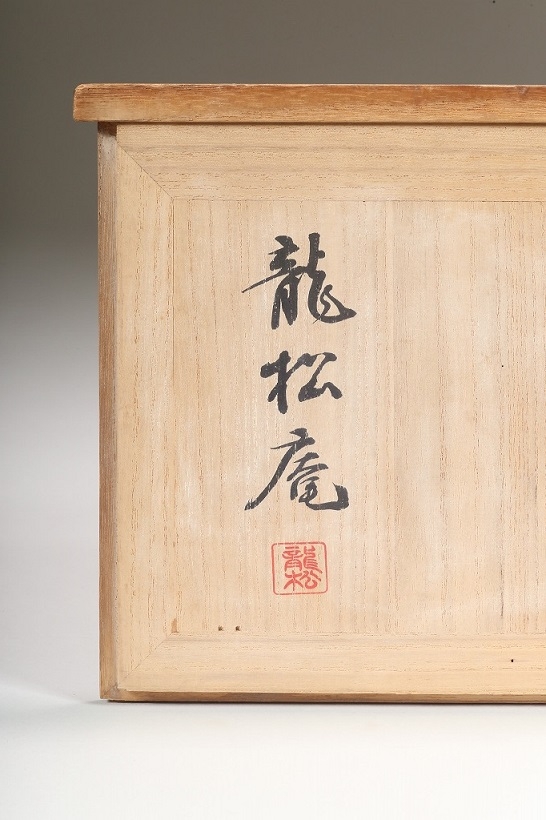 龍松庵
龍松